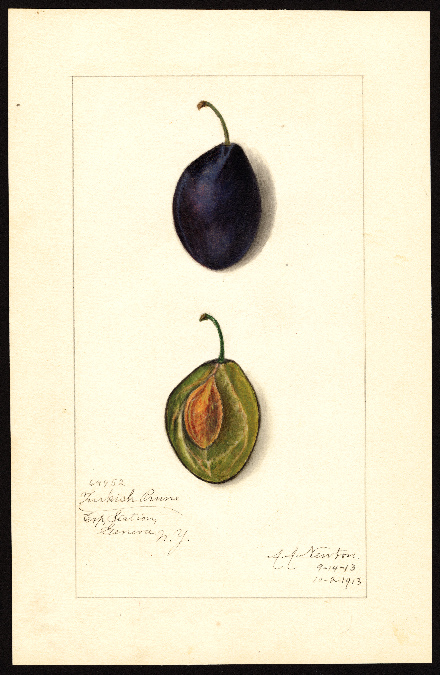 64952
Turkish Prune
Exp. Station,
Geneva N.Y.
Newton.
9-14-13
10-2-1913